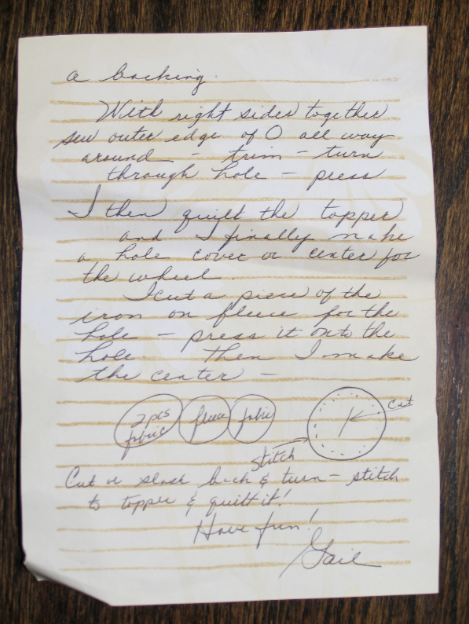 a backing.
With right sides together
sew outer edge of O all way
around - trim - turn
through hole - press
I then quilt the topper
and I finally make
a hole cover or center for
the wheel
I cut a piece of the
iron on fleece for the
hole - press it onto the
hole. Then I make
the center -
2 pcs fabric
fleece
fabric
cut
stitch
Cut or slash back & turn - stitch
to topper & quilt it!
Have fun!
Gail